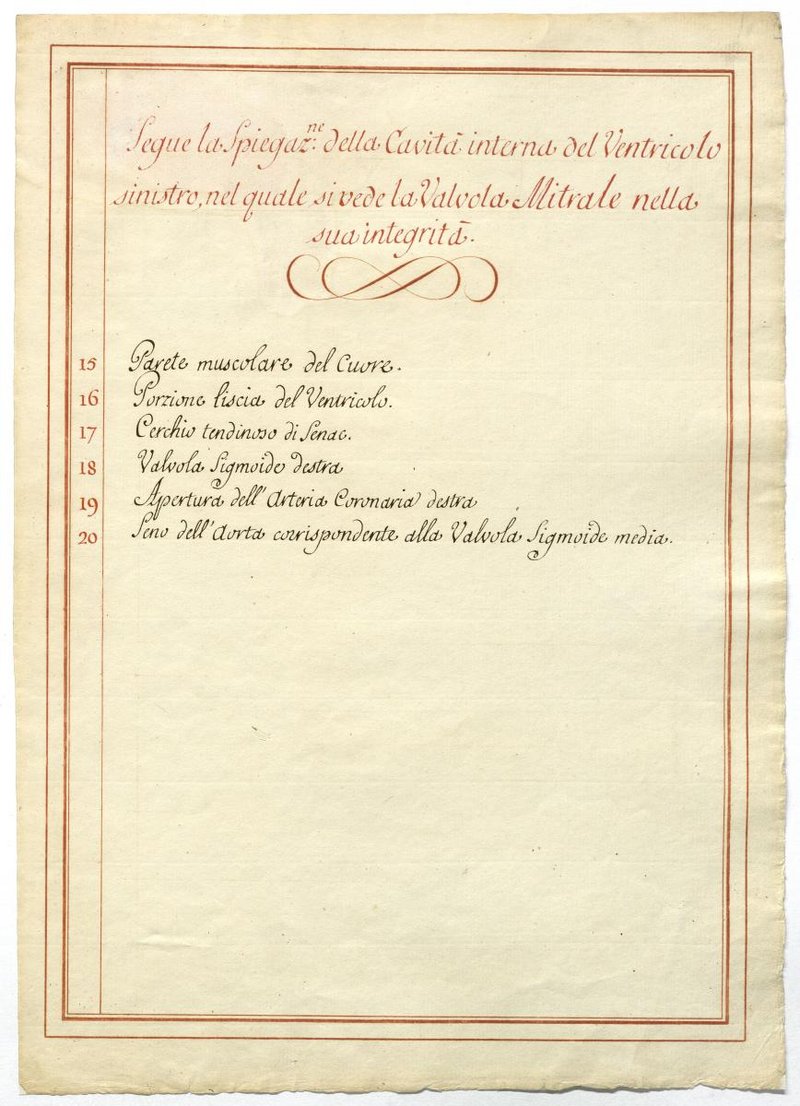 Segue la Spiegaz.ne della Cavità interna del Ventricolo
sinistro, nel quale si vede la Valvola Mitrale nella
sua integrità.
15 Parete muscolare del Cuore.
16 Porzione liscia del Ventricolo.
17 Cerchio tendinoso di Senac.
18 Valvola Sigmoide destra
19 Apertura dell'Arteria Coronaria destra
20 Seno dell'Aorta corrispondente alla Valvola Sigmoide media.